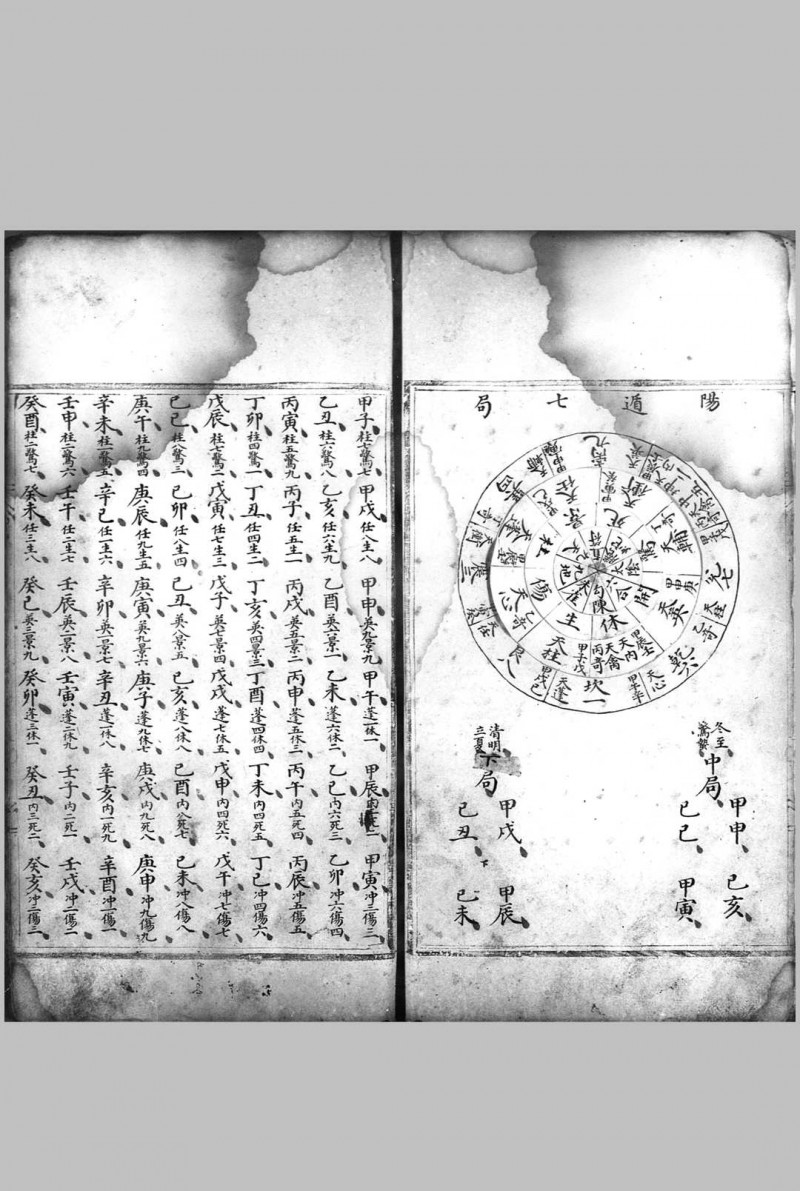 陽遁七局
九
七
乾六
坎一
艮八
震三
休
生
傷
杜
死
開
勾陳
天柱
天心
天蓬
天禽
天内
丙奇
甲子戊
甲戌己
甲辰壬
甲午辛
冬至
驚蟄
中局
甲申、己亥、
己巳、甲寅、
清明
立夏
下局
甲戌、甲辰、
己丑、己未、
甲子柱七驚七、甲戌任八生八、甲申英九景九、甲午蓬一休一、甲辰内二死二、甲寅冲三傷三、
乙丑柱六驚八、乙亥任六生九、乙酉英六景一、乙未蓬六休二、乙巳内六死三、乙卯冲六傷四、
丙寅柱五驚九、丙子任五生一、丙戌英五景二、丙申蓬五休三、丙午内五死四、丙辰冲五傷五、
丁卯柱四驚一、丁丑任四生二、丁亥英四景三、丁酉蓬四休四、丁未内四死五、丁巳冲四傷六、
戊辰柱七驚二、戊寅任七生三、戊子英七景四、戊戌蓬七休五、戊申内四死六、戊午冲七傷七、
己巳柱八驚三、己卯任八生四、己丑英八景五、己亥蓬八休八、己酉内八死七、己未冲八傷八、
庚午柱九驚四、庚辰任九生五、庚寅英九景六、庚子蓬九休七、庚戌内九死八、庚申冲九傷九、
辛未柱一驚五、辛巳任一生六、辛卯英一景七、辛丑蓬一休八、辛亥内一死九、辛酉冲一傷一、
壬申柱二驚六、壬午任二生七、壬辰英二景八、壬寅蓬二休九、壬子内二死一、壬戌冲二傷二、
癸酉柱二驚七、癸未任三生八、癸巳英三景九、癸卯蓬三休一、癸丑内三死二、癸亥冲三傷三、